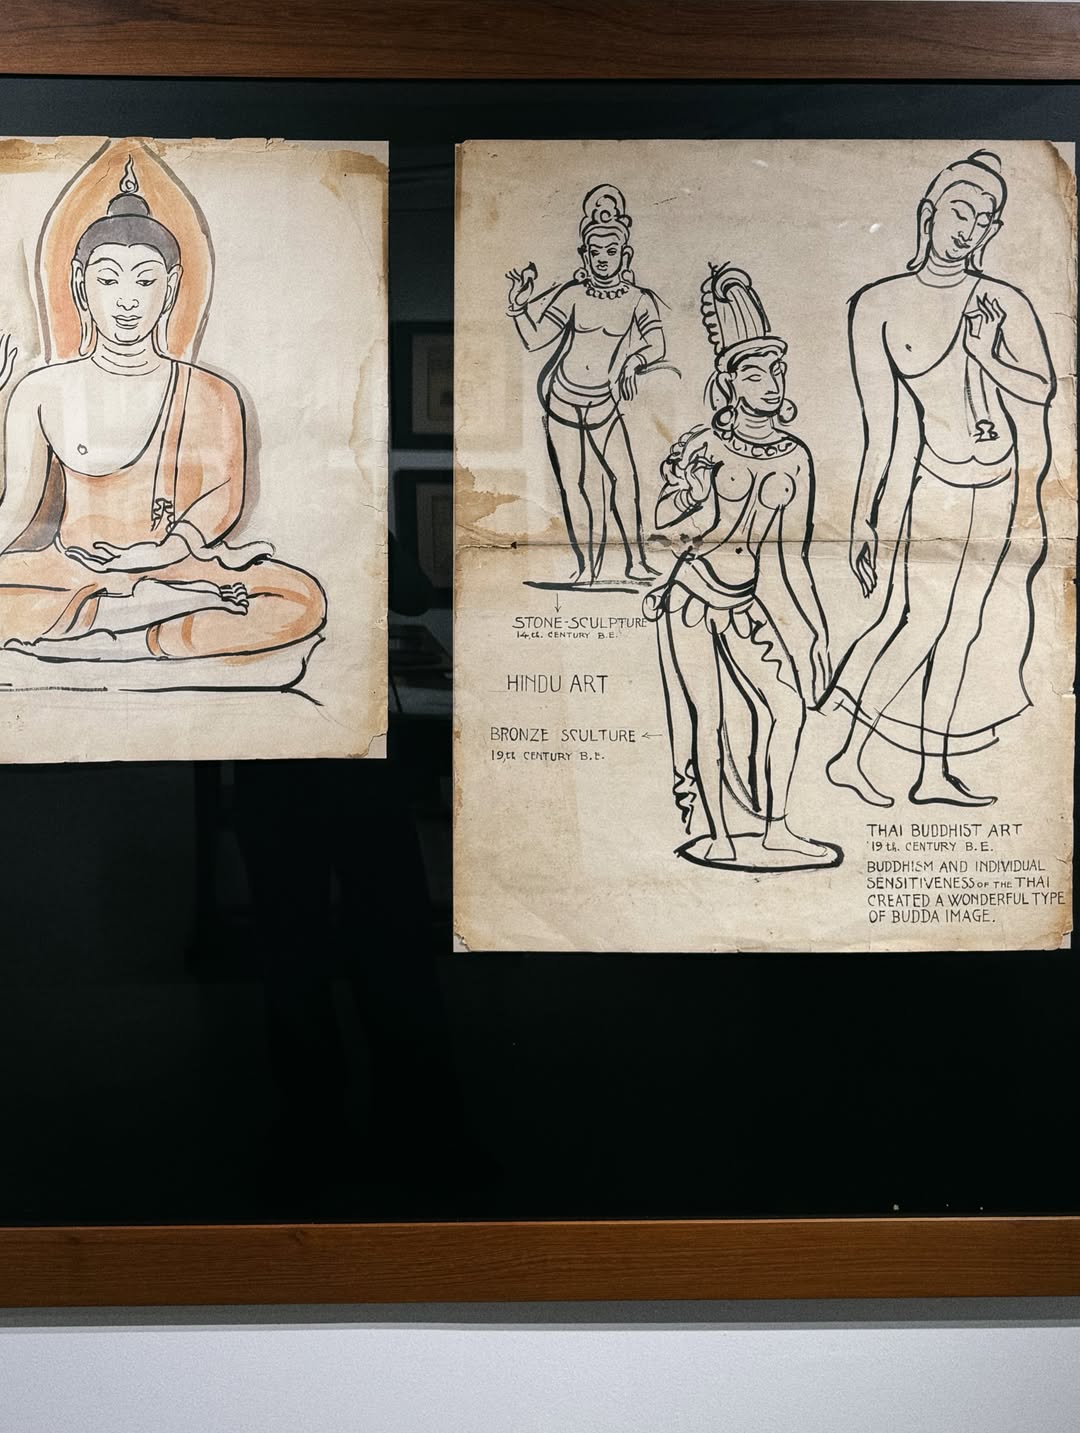 STONE-SCULPTURE
14th. CENTURY B.E.
HINDU ART
BRONZE SCULTURE
19th CENTURY B.E.
THAI BUDDHIST ART
19th. CENTURY B.E.
BUDDHISM AND INDIVIDUAL
SENSITIVENESS OF THE THAI
CREATED A WONDERFUL TYPE
OF BUDDA IMAGE.